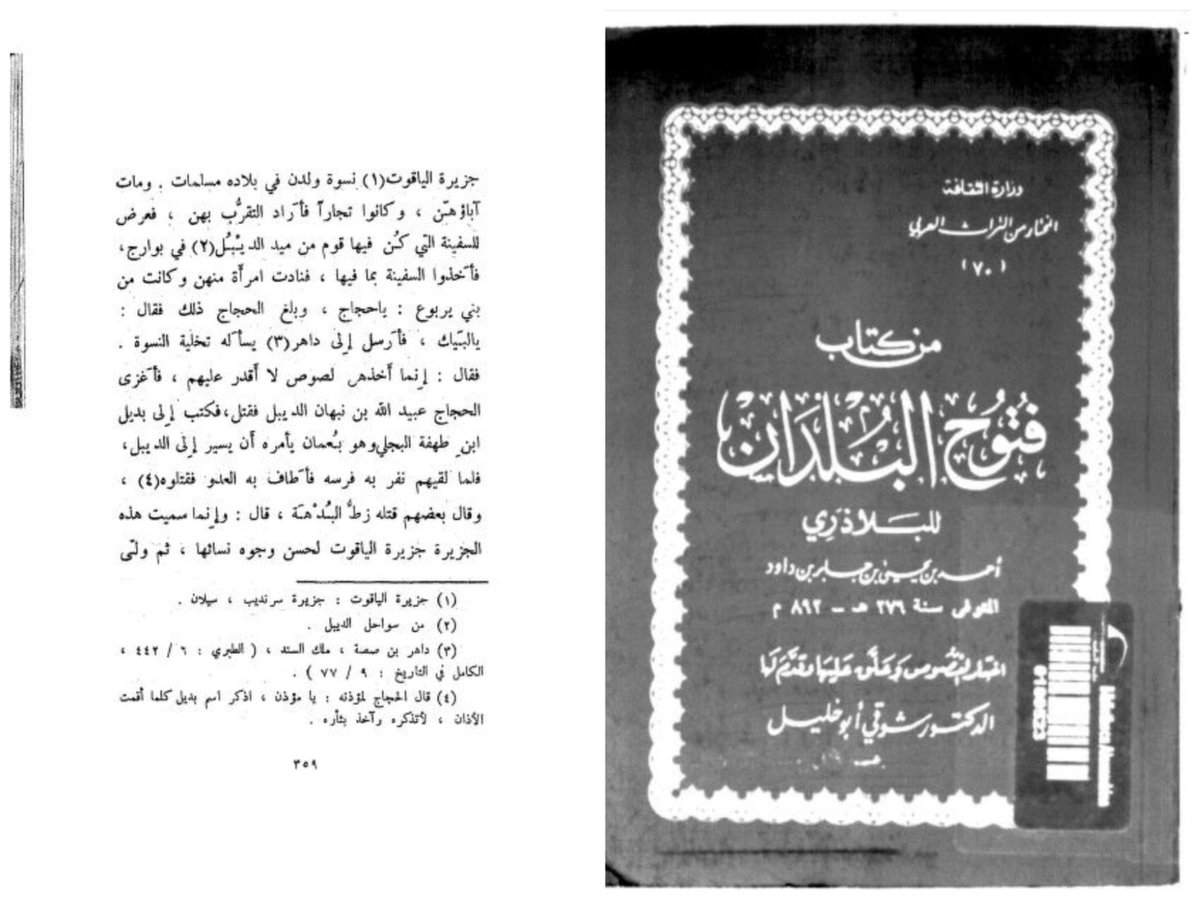 جزيرة الياقوت(١) نسوة ولدن في بلاده مسلمات . ومات
آباؤهنّ ، وكانوا تجاراً فأراد التقرُّب بهن ، فعرض
للسفينة التي كُن فيها قوم من ميد الديْبُل(٢) في بوارج،
فأخذوا السفينة بما فيها ، فنادت امرأة منهن وكانت من
بني يربوع : ياحجاج ، وبلغ الحجاج ذلك فقال :
يالبّيك ، فأرسل إلى داهر(٣) يسأله تخلية النسوة .
فقال : إنما أخذهن لصوص لا أقدر عليهم ، فأغزى
الحجاج عبيد الله بن نبهان الديبل فقتل،فكتب إلى بديل
ابنِ طهفة البجليوهو بعُمان يأمره أن يسير إلى الديبل،
فلما لقيهم نفر به فرسه فأطاف به العدو فقتلوه(٤) ،
وقال بعضهم قتله زطُّ البُدْهة ، قال : وإنما سميت هذه
الجزيرة جزيرة الياقوت لحسن وجوه نسائها ، ثم ولّى
(١) جزيرة الياقوت : جزيرة سرنديب ، سيلان .
(٢) من سواحل الديبل .
(٣) داهر بن صصة ، ملك السند ، ( الطبري : ٦ / ٤٤٢ ،
الكامل في التاريخ : ٩ / ٧٧ ) .
(٤) قال الحجاج لمؤذنه : يا مؤذن ، اذكر اسم بديل كلما أقمت
الأذان ، لأتذكره وآخذ بثأره .
٣٥٩
وزارة الثقافة
المختار من التراث العربي
(٧٠)
من كتاب
فُتُوح البُلْدَان
للبلاذَري
أحمد بن يحيى بن جابر بن داود
المتوفى سنة ٢٧٩ هـ - ٨٩٢ م
اختار النصوص وعلّق عليها وقدَّم لها
الدكتور شوقي أبو خليل